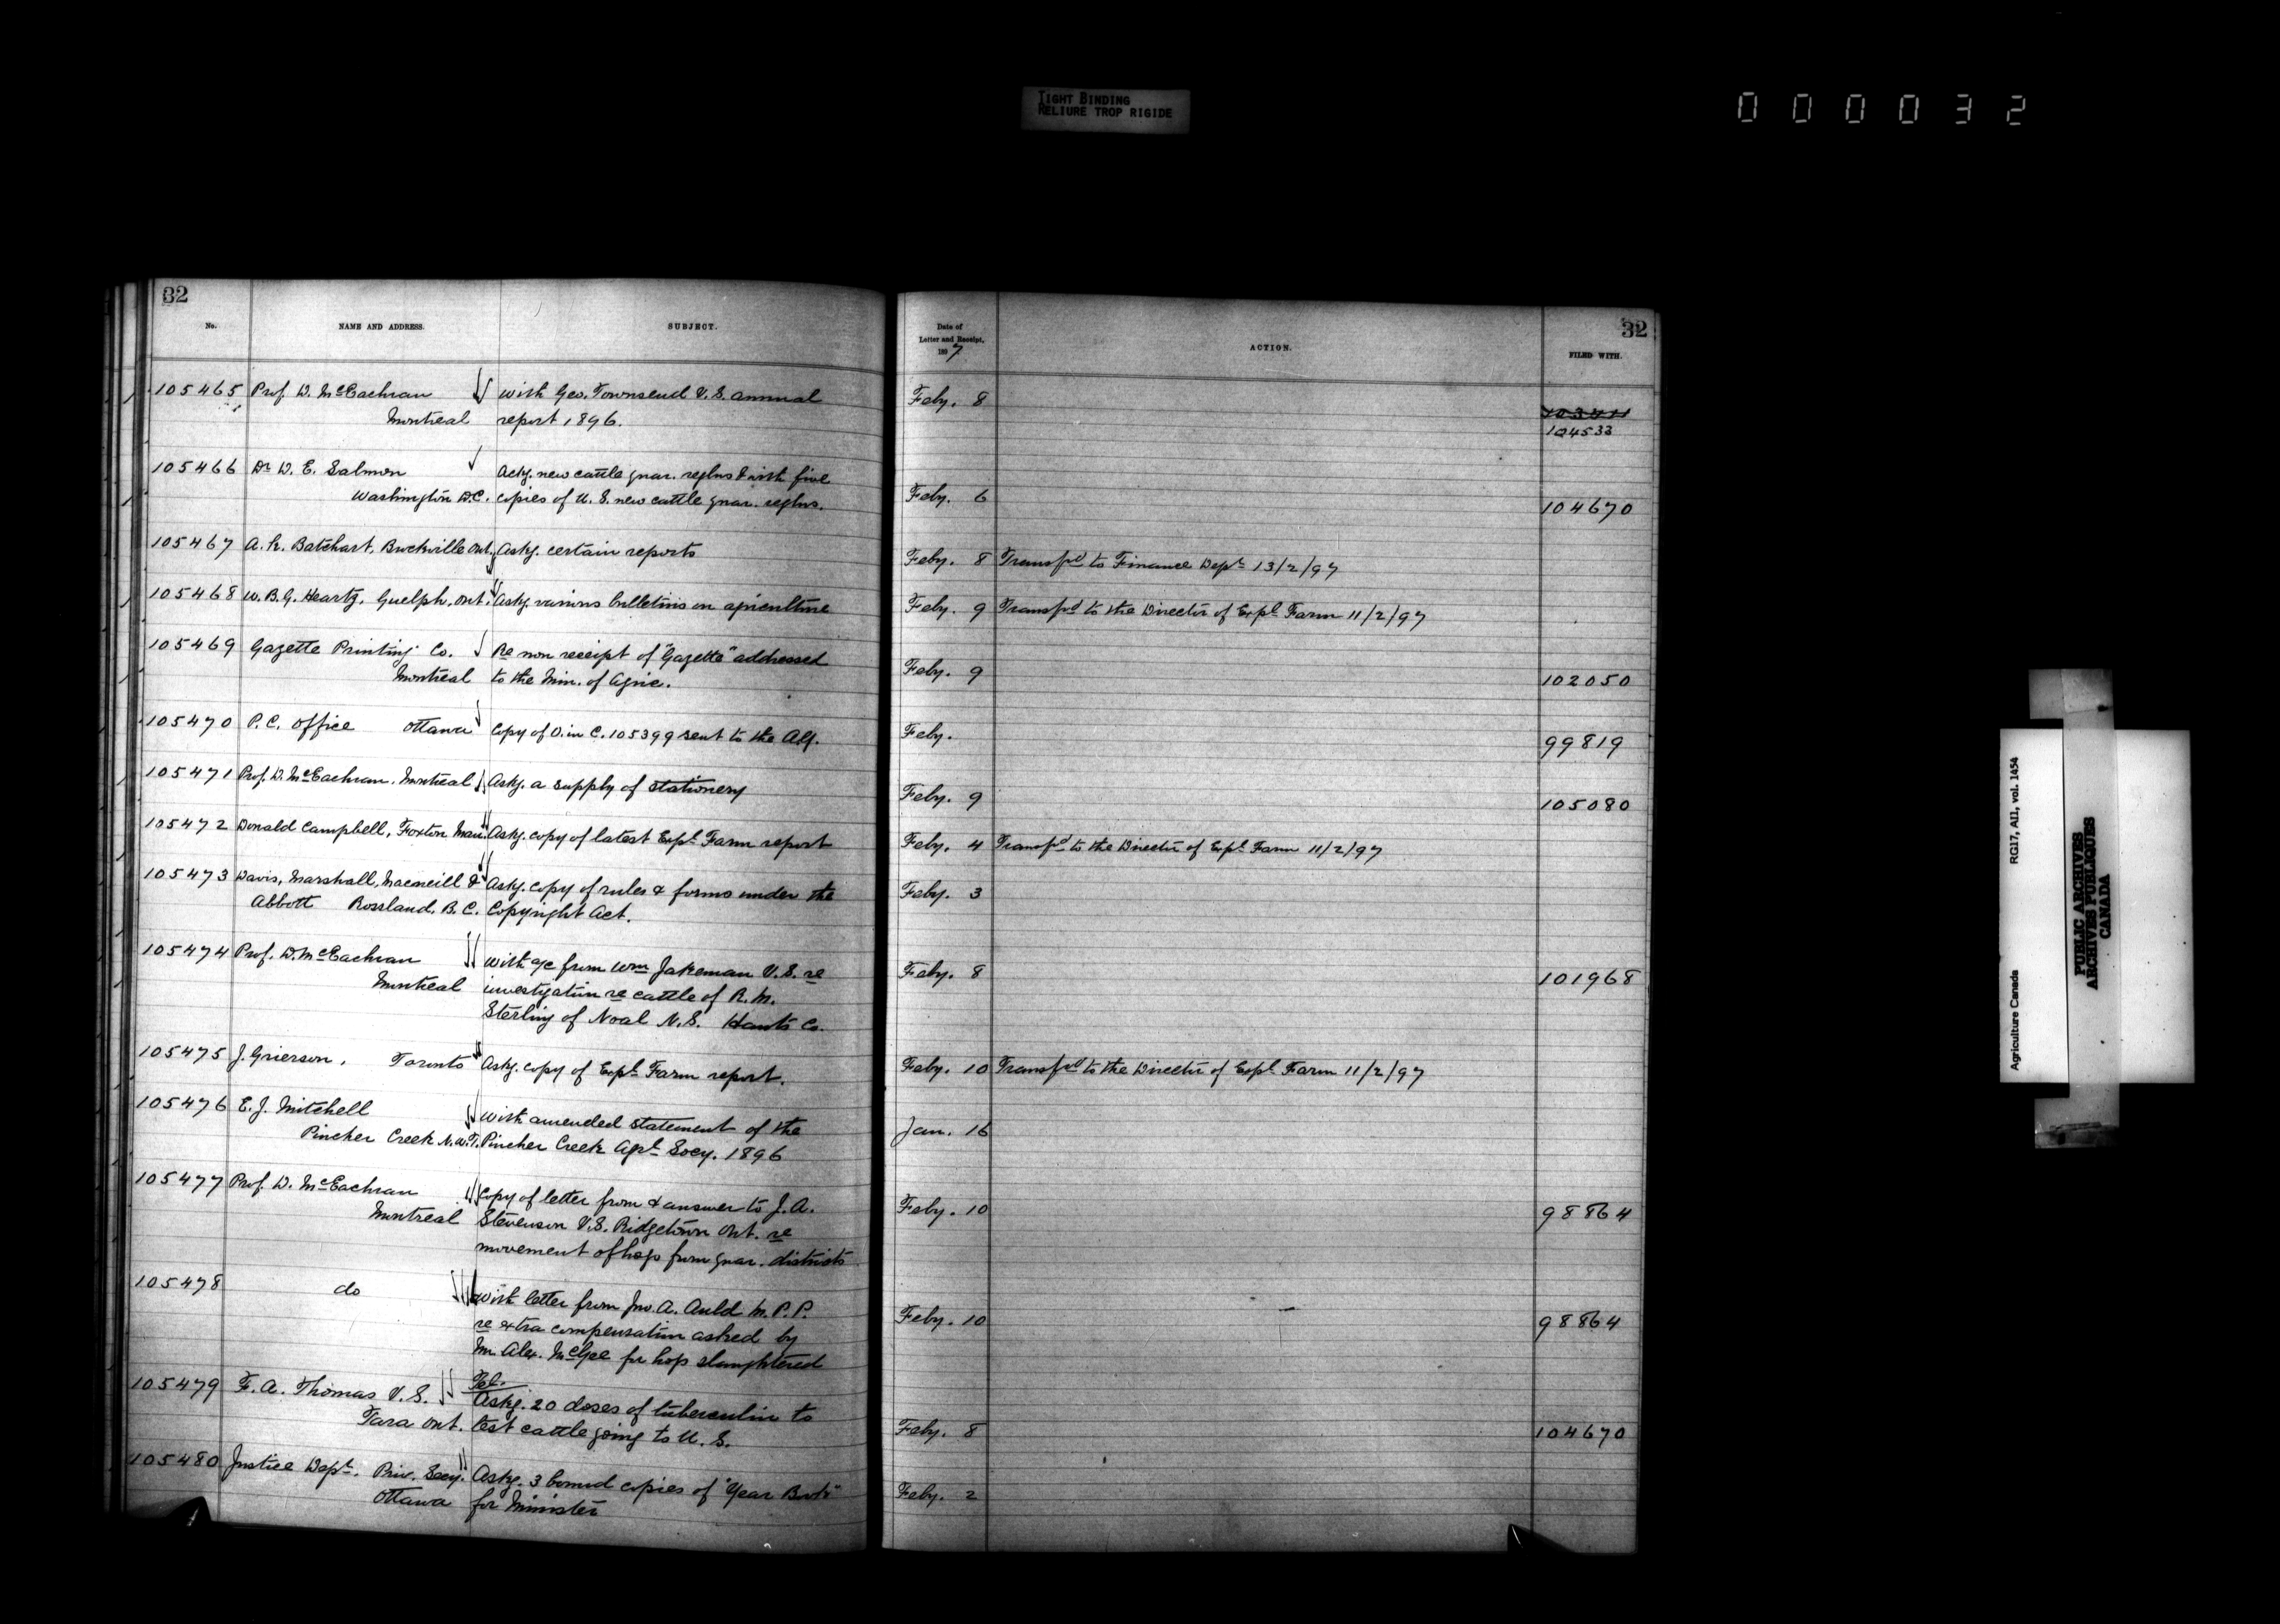 TIGHT BINDING
RELIURE TROP RIGIDE
000032
32
No. NAME AND ADDRESS. SUBJECT.
105465 Prof. D. McEachran with Geo. Townsend V.S. annual
Montreal report 1896.
105466 Dr D. E. Salmon Ackg. new cattle quar. reglns & with five
Washington D.C. copies of U. S. new cattle quar. reglns.
105467 A. H. Batchart, Brockville Ont. Askg. certain reports
105468 W. B. G. Heartz, Guelph, Ont. Askg. various bulletins on agriculture
105469 Gazette Printing Co. Re non receipt of "Gazette" addressed
Montreal to the Min. of Agric.
105470 P. C. Office Ottawa Copy of O. in C. 105399 sent to the A.G.
105471 Prof. D. McEachran, Montreal Askg. a supply of stationery
105472 Donald Campbell, Foxton Man. Askg. copy of latest Expl Farm report
105473 Davis, Marshall, Macneill & Askg. copy of rules & forms under the
Abbott Rossland, B.C. Copyright Act.
105474 Prof. D. McEachran with a/c from Wm Jakeman V.S. re
Montreal investigation re cattle of R. M.
Sterling of Noal N.S. Hants Co.
105475 J. Grierson, Toronto Askg. copy of Expl Farm report.
105476 E. J. Mitchell with amended statement of the
Pincher Creek N.W.T. Pincher Creek Agrl Socy. 1896
105477 Prof. D. McEachran Copy of letter from & answer to J. A.
Montreal Stevenson V.S. Ridgetown Ont. re
movement of hogs from quar. districts
105478 do with letter from Jno. A. Auld M.P.P.
re extra compensation asked by
Mr. Alex. McGee for hogs slaughtered
105479 F. A. Thomas V.S. Tel.
Askg. 20 doses of tuberculin to
Tara Ont. test cattle going to U. S.
105480 Justice Dept. Priv. Secy. Askg. 3 bound copies of "Year Book"
Ottawa for Minister
32
Date of
Letter and Receipt,
1897
ACTION.
FILED WITH.
Feby. 8
103411
104533
Feby. 6 104670
Feby. 8 Transfd to Finance Dept 13/2/97
Feby. 9 Transfd to the Director of Expl Farm 11/2/97
Feby. 9 102050
Feby. 99819
Feby. 9 105080
Feby. 4 Transfd to the Director of Expl Farm 11/2/97
Feby. 3
Feby. 8 101968
Feby. 10 Transfd to the Director of Expl Farm 11/2/97
Jan. 16
Feby. 10 98864
Feby. 10 98864
Feby. 8 104670
Feby. 2
Agriculture Canada RG17, AII, vol. 1454
PUBLIC ARCHIVES
ARCHIVES PUBLIQUES
CANADA